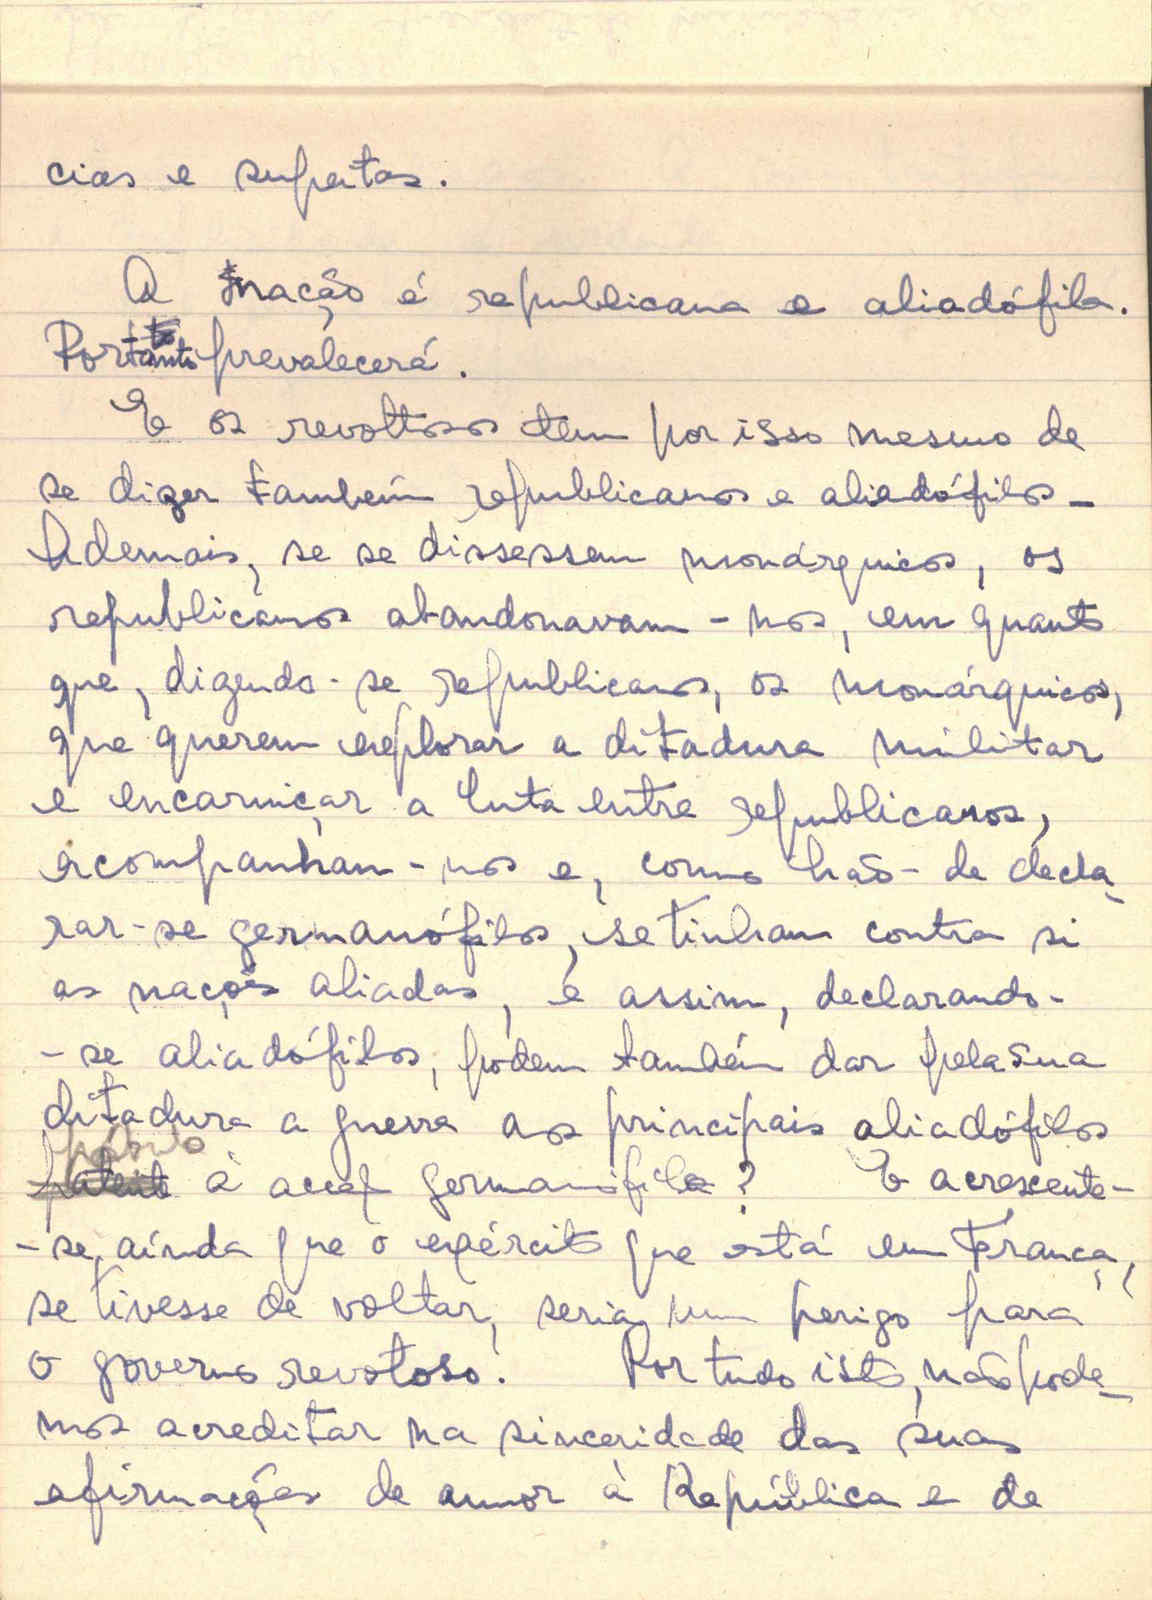 cias e suspeitas.
A nação é republicana e aliadófila.
Portanto prevalecerá.
E os revoltosos tem por isso mesmo de
se dizer também republicanos e aliadófilos –
Ademais, se se dissessem monárquicos, os
republicanos abandonavam-nos, em quanto
que, dizendo-se republicanos, os monárquicos,
que querem explorar a ditadura militar
e encarniçar a luta entre republicanos,
acompanham-nos e, como hão-de decla-
rar-se germanófilos, se tinham contra si
as nações aliadas, e assim, declarando-
-se aliadófilos, podem também dar pela sua
ditadura a guerra aos principais aliadófilos
à germanófila? E acrescente-
-se, ainda que o exército que está em França,
se tivesse de voltar, seria um perigo para
o governo revoltoso. Por tudo isto, não pode-
mos acreditar na sinceridade das suas
afirmações de amor à República e de